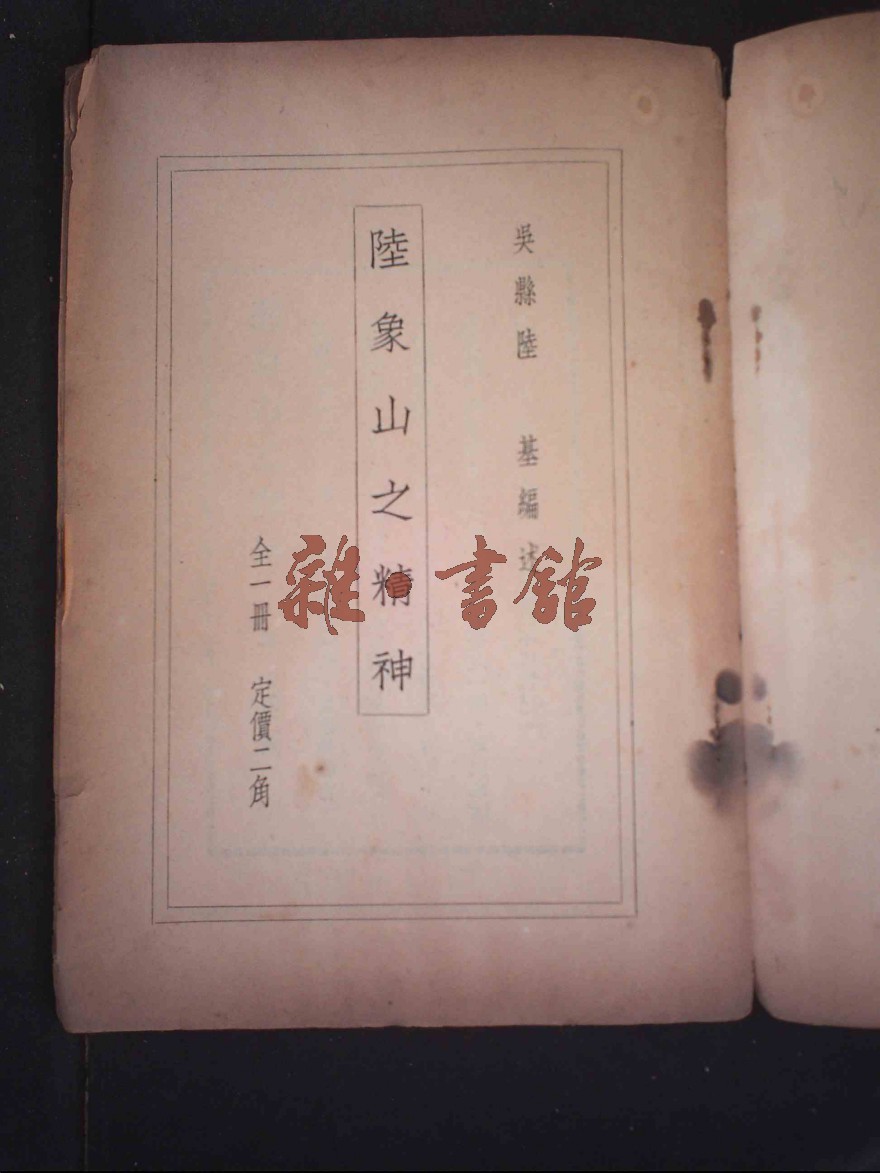 吳縣陸 基編述
陸象山之精神
全一冊 定價二角
雜書館